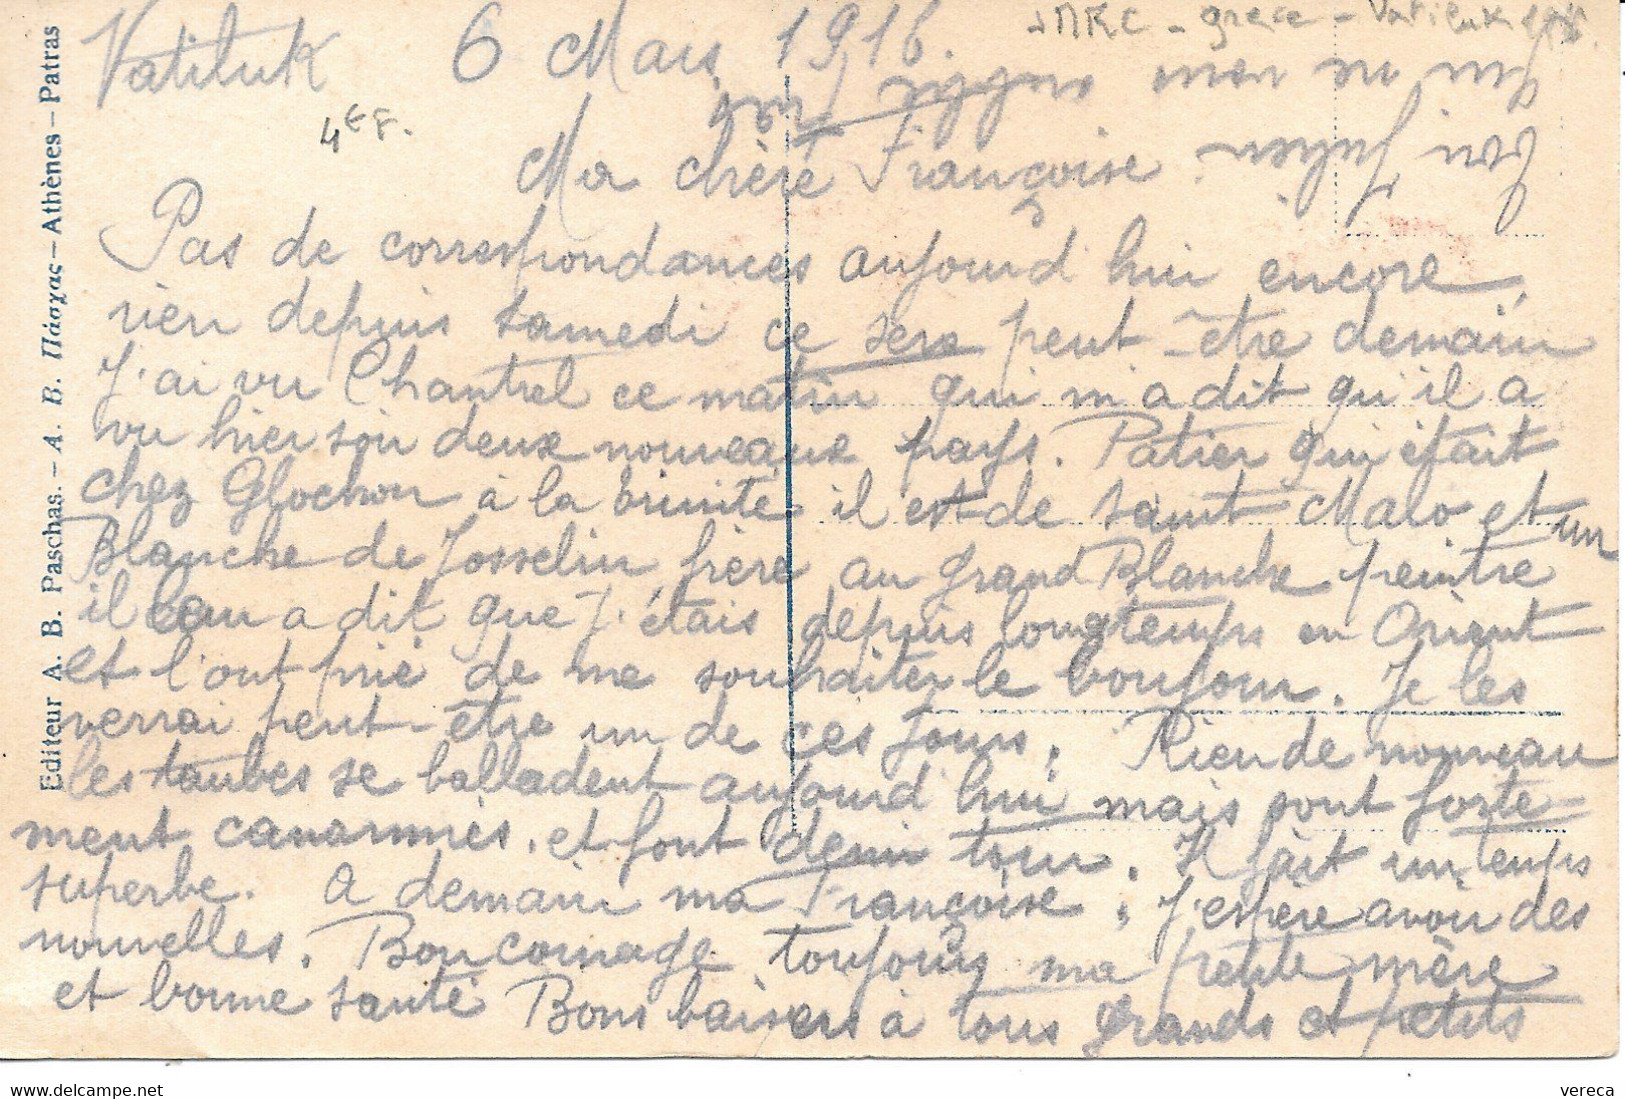 JMRC - grece - Vatiluk 1916.
Vatiluk 6 Mars 1916.
4 E F.
Ma chère Françoise
Pas de correspondances aujourd hui encore
rien depuis samedi ce sera peut-être demain
J'ai vu Chantrel ce matin qui m'a dit qu'il a
vu hier soir deux nouveaux pays. Patier qui était
chez Glochon à la il est de Saint Malo et un
Blanche de Josselin frère au grand Blanche peintre
il a dit que j'étais depuis longtemps en Orient
et l'ont prié de me souhaiter le bonjour. Je les
verrai peut-être un de ces jours. Rien de nouveau
les taubes se balladent aujourd hui mais sont forte=
ment canarnnés. et font demi tour. Il fait un temps
superbe. A demain ma Françoise. J'espère avoir des
nouvelles. Bon courage toujours ma petite mère
et bonne santé Bons baisers à tous grands et petits
Ton Julien
Editeur A. B. Paschas. - Α. Β. Πάσχας - Athènes - Patras